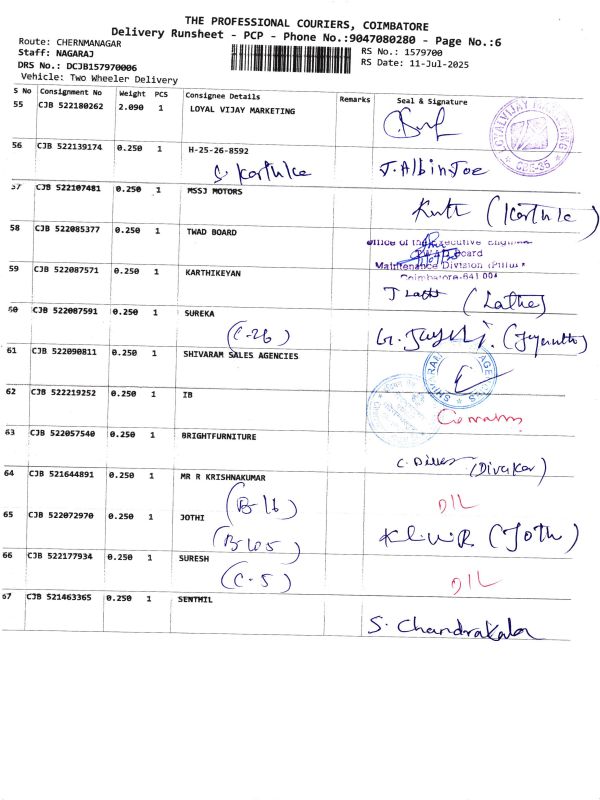 THE PROFESSIONAL COURIERS, COIMBATORE
Delivery Runsheet - PCP - Phone No.:9047080280 - Page No.:6
Route: CHERNMANAGAR
RS No.: 1579700
Staff: NAGARAJ
RS Date: 11-Jul-2025
DRS No.: DCJB157970006
Vehicle: Two Wheeler Delivery
S No Consignment No Weight PCS Consignee Details Remarks Seal & Signature
55 CJB 522180262 2.090 1 LOYAL VIJAY MARKETING
56 CJB 522139174 0.250 1 H-25-26-8592
S. Karthika J. Albin Joe
57 CJB 522107481 0.250 1 MSSJ MOTORS
(Karthik)
58 CJB 522085377 0.250 1 TWAD BOARD
Office of the Executive Engineer
TWAD Board
Maintenance Division
Coimbatore-641 001
59 CJB 522087571 0.250 1 KARTHIKEYAN
(Latha)
60 CJB 522087591 0.250 1 SUREKA
(C-26)
61 CJB 522090811 0.250 1 SHIVARAM SALES AGENCIES
62 CJB 522219252 0.250 1 IB
63 CJB 522057540 0.250 1 BRIGHTFURNITURE
(Divakar)
64 CJB 521644891 0.250 1 MR R KRISHNAKUMAR
(B-16) DIL
65 CJB 522072970 0.250 1 JOTHI
(B-105) (Joth)
66 CJB 522177934 0.250 1 SURESH
(C-5) DIL
67 CJB 521463365 0.250 1 SENTHIL
S. Chandrakala